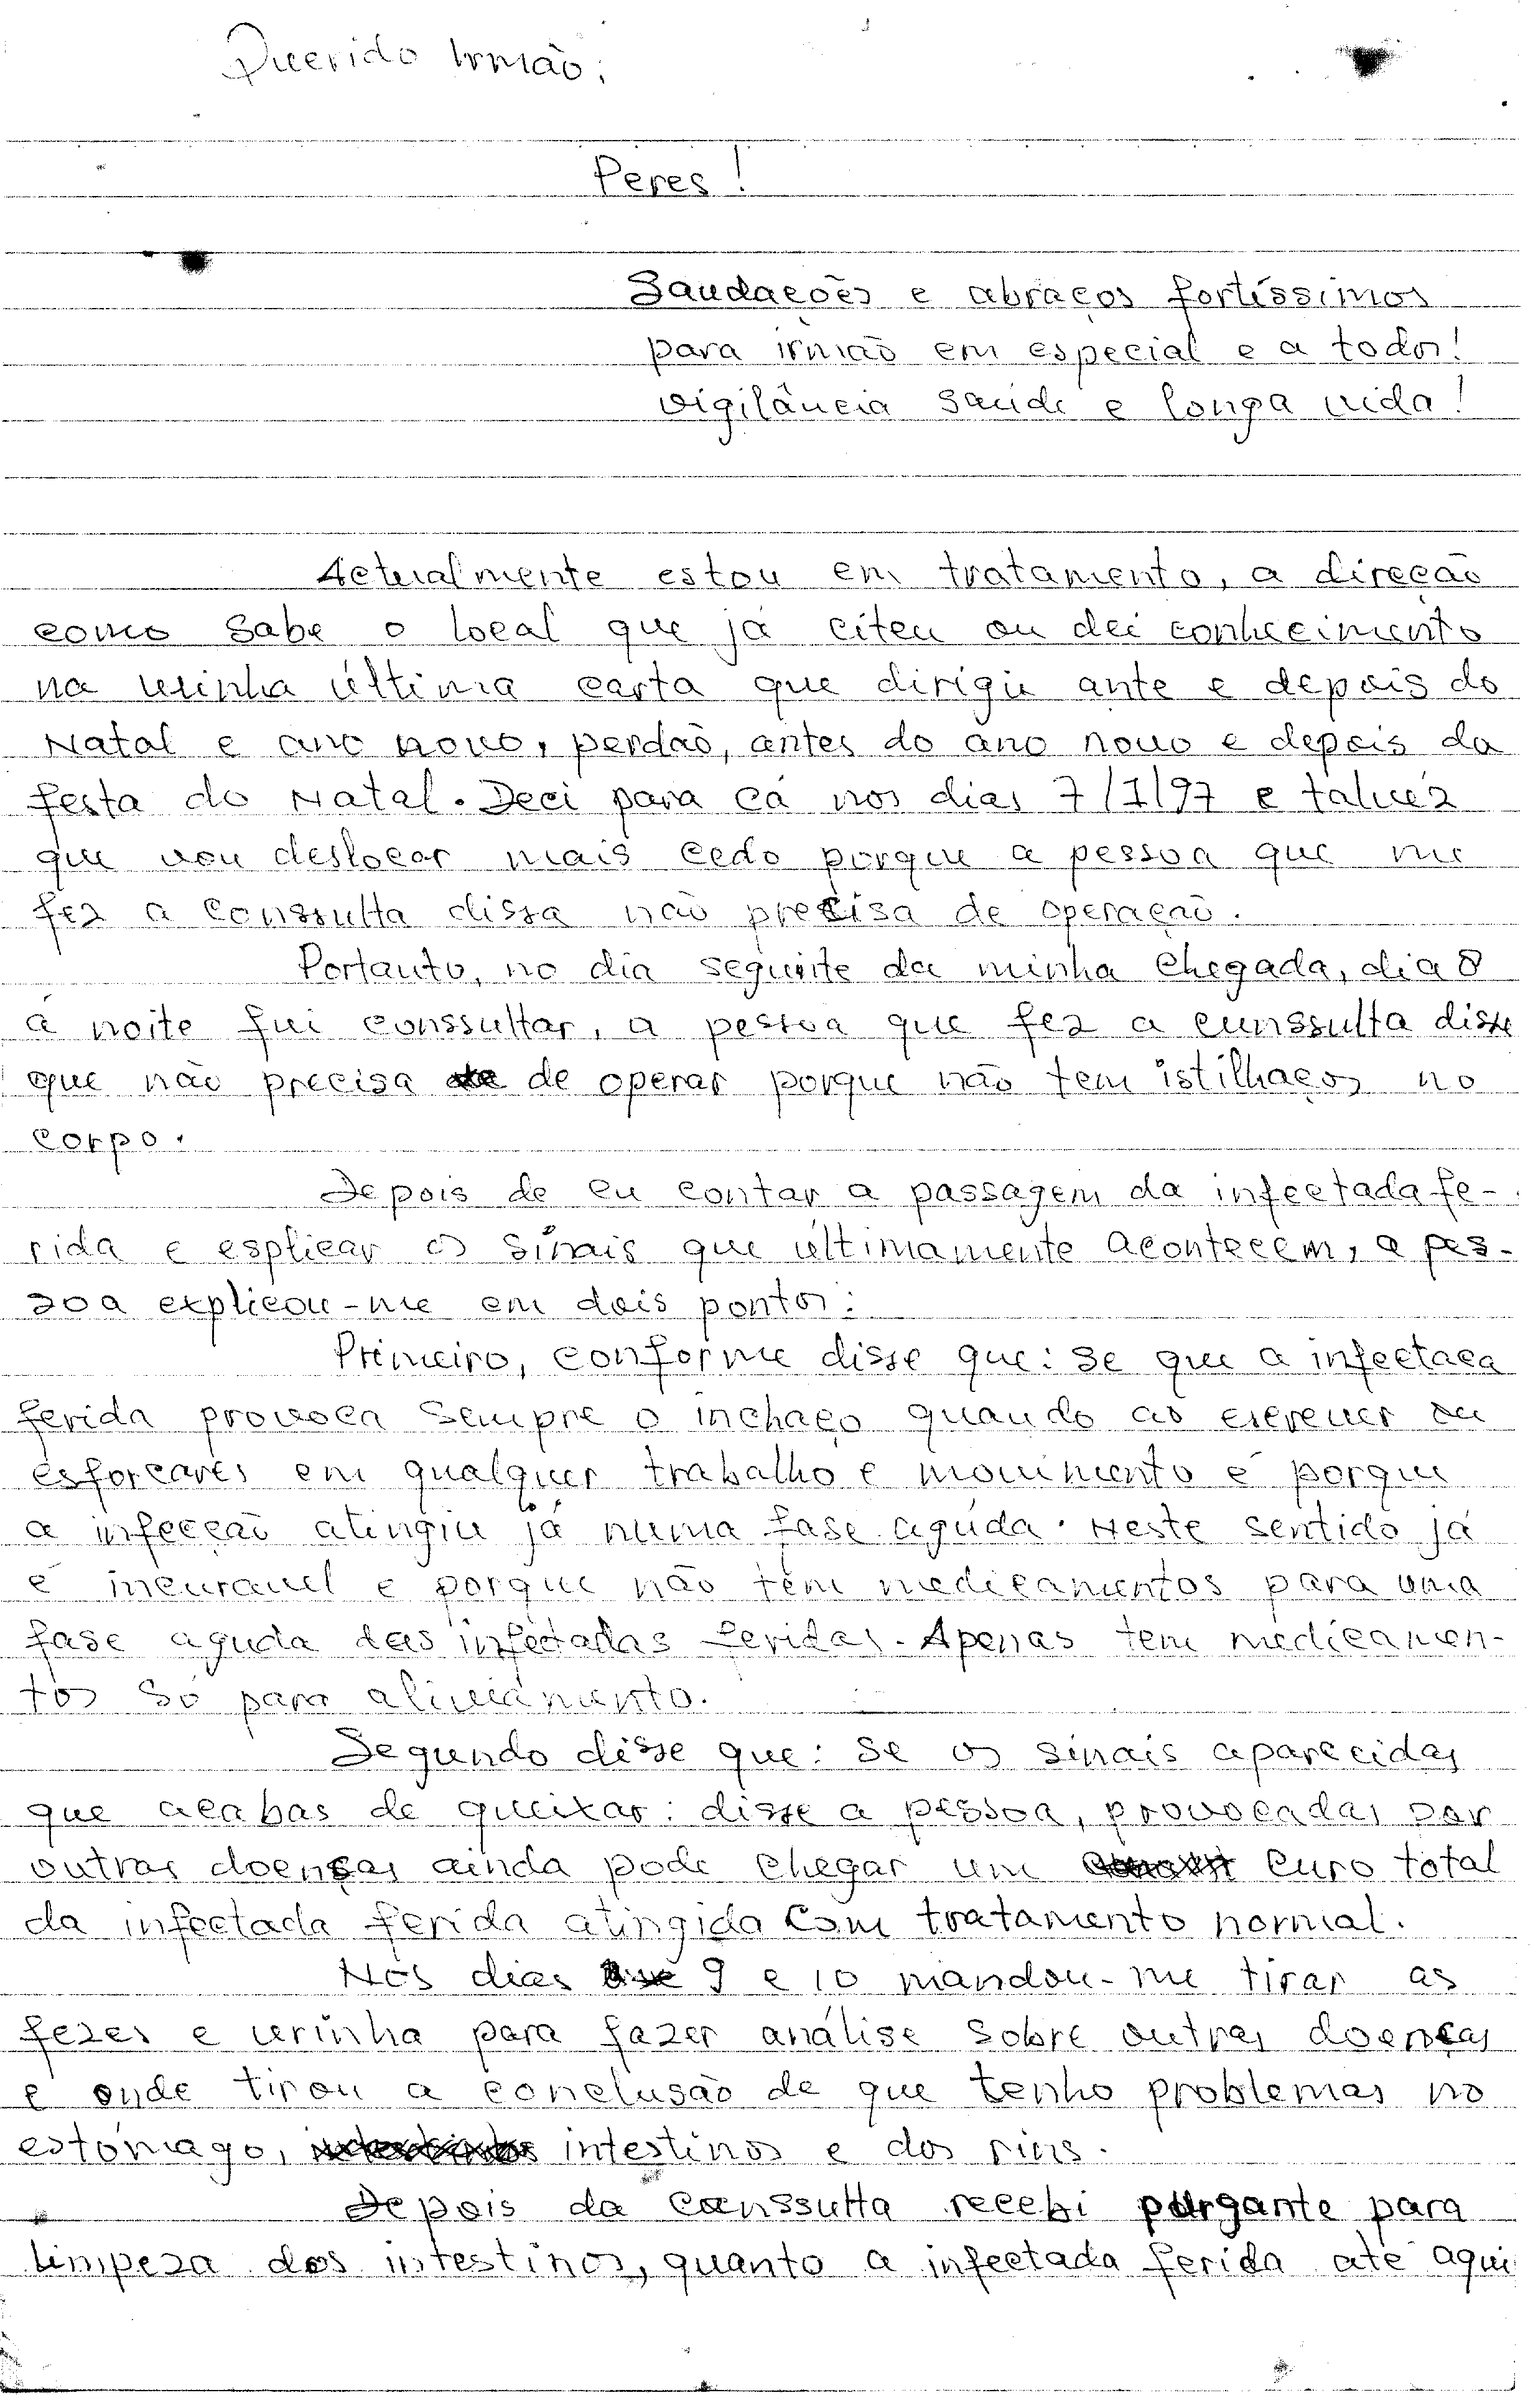 Querido Irmão:
Peres!
Saudações e abraços fortíssimos
para irmão em especial e a todos!
vigilância saúde e longa vida!
Actualmente estou em tratamento, a direcão
como sabe o local que já citeu ou dei conhecimento
na minha última carta que dirigiu ante e depois do
Natal e ano novo, perdão, antes do ano novo e depois da
festa do Natal. Deci para cá nos dias 7/1/97 e talvéz
que vou deslocar mais cedo porque a pessoa que me
fez a conssulta dissa não precisa de operação.
Portanto, no dia seguinte da minha chegada, dia 8
á noite fui conssultar, a pessoa que fez a cunssulta disse
que não precisa de operar porque não tem istilhaços no
corpo.
Depois de eu contar a passagem da infectada fe-
rida e esplicar os sinais que últimamente acontecem, a pes-
soa explicou-me em dois pontos:
Primeiro, conforme disse que: se que a infectaca
ferida provoca sempre o inchaço quando ao escrever ou
esforcares em qualquer trabalho e movimento é porque
a infecção atingiu já numa fase agúda. Neste sentido já
é incuravel e porque não têm medicamentos para uma
fase aguda das infectadas feridas. Apenas tem medicamen-
tos só para aliviamento.
Segundo disse que: se os sinais aparecidas
que acabas de queixar: disse a pessoa, provocadas por
outras doenças ainda pode chegar um curo total
da infectada ferida atingida com tratamento normal.
Nos dias 9 e 10 mandou-me tirar as
fezes e urinha para fazer análise sobre outras doenças
e onde tirou a conclusão de que tenho problemas no
estómago, intestinos e dos rins.
Depois da conssulta recebi purgante para
limpeza dos intestinos, quanto a infectada ferida até aqui